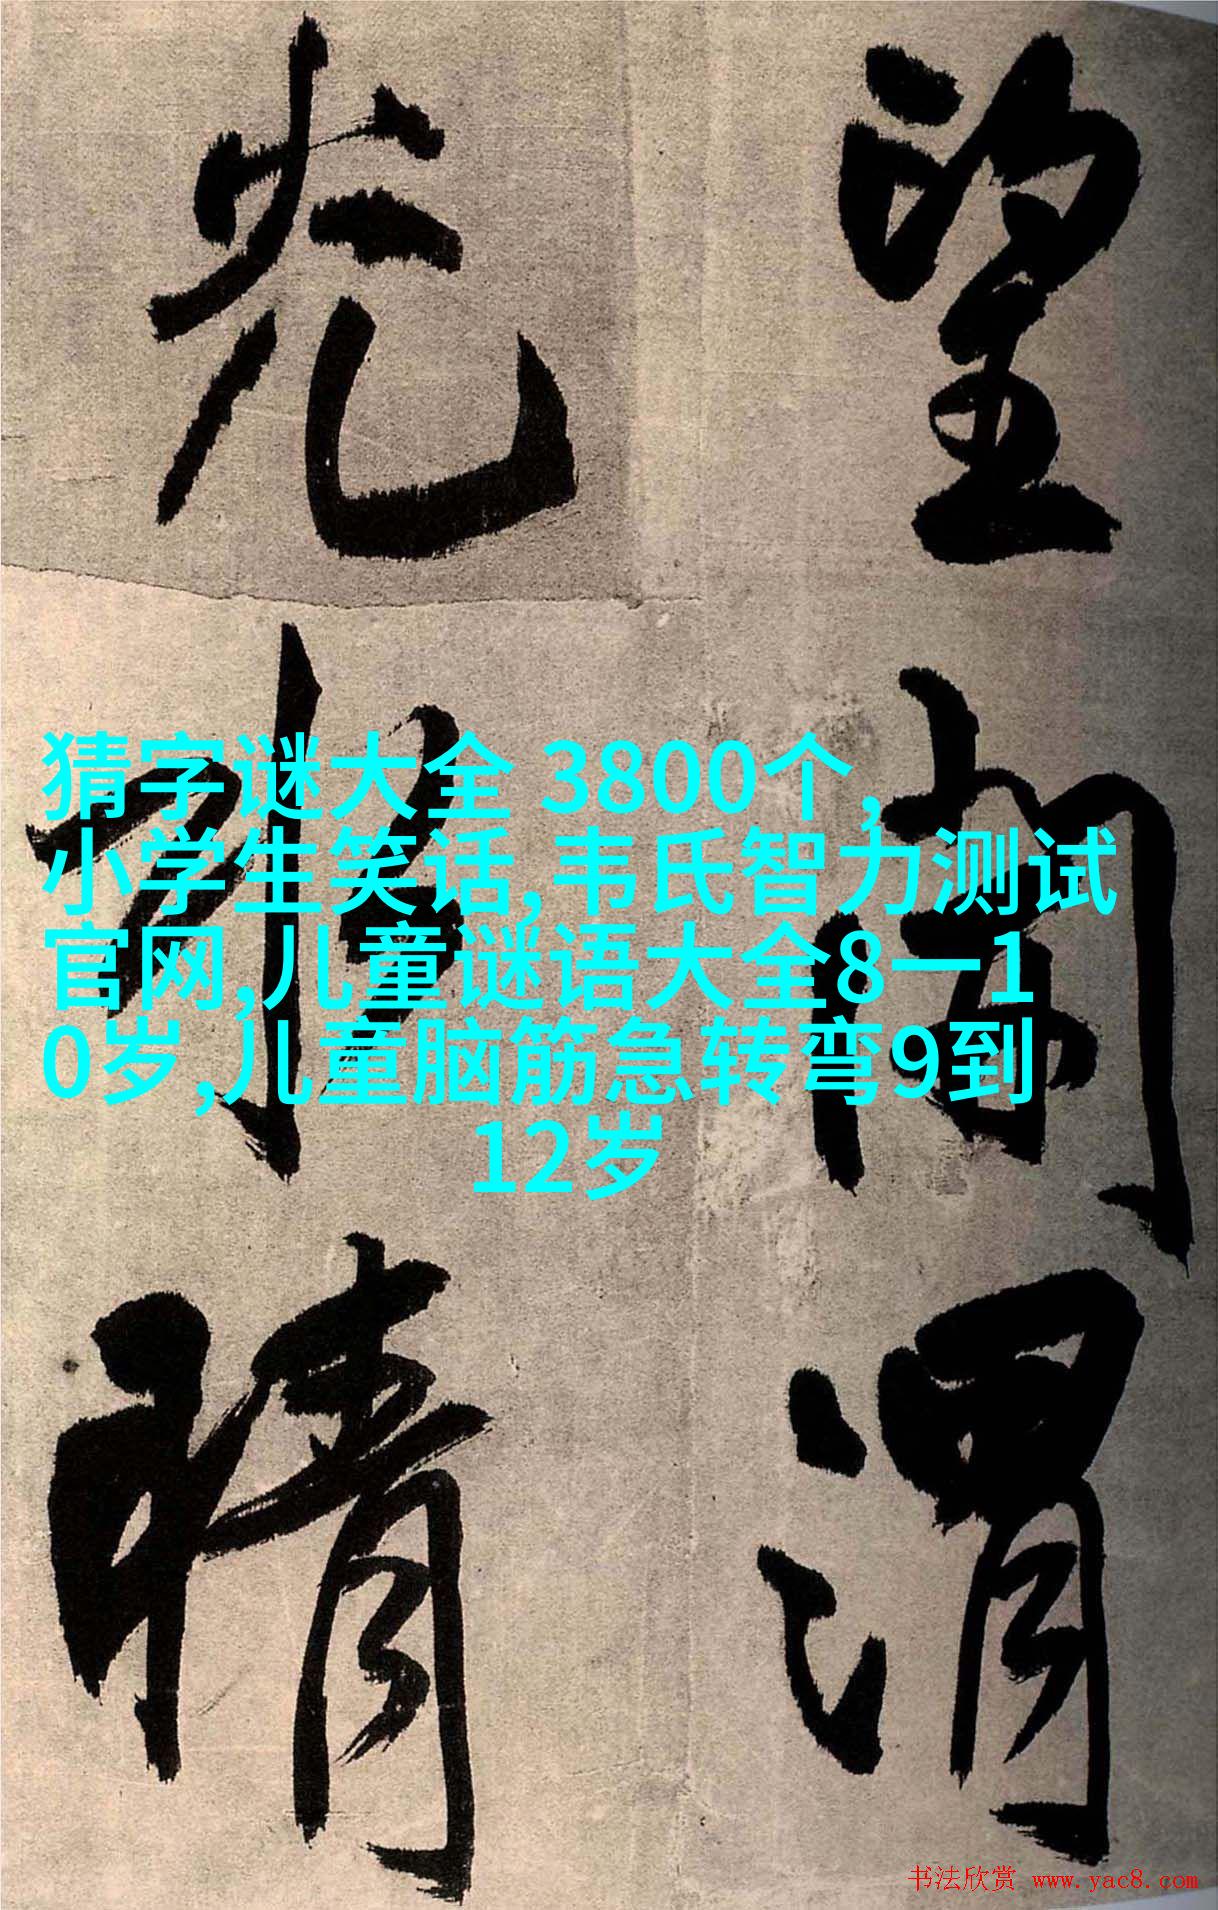 望
渭
光
晴
猜字谜大全 3800个,
小学生笑话,韦氏智力测试
官网,儿童谜语大全8一1
0岁,儿童脑筋急转弯9到
12岁
书法欣赏 www.yac8.com